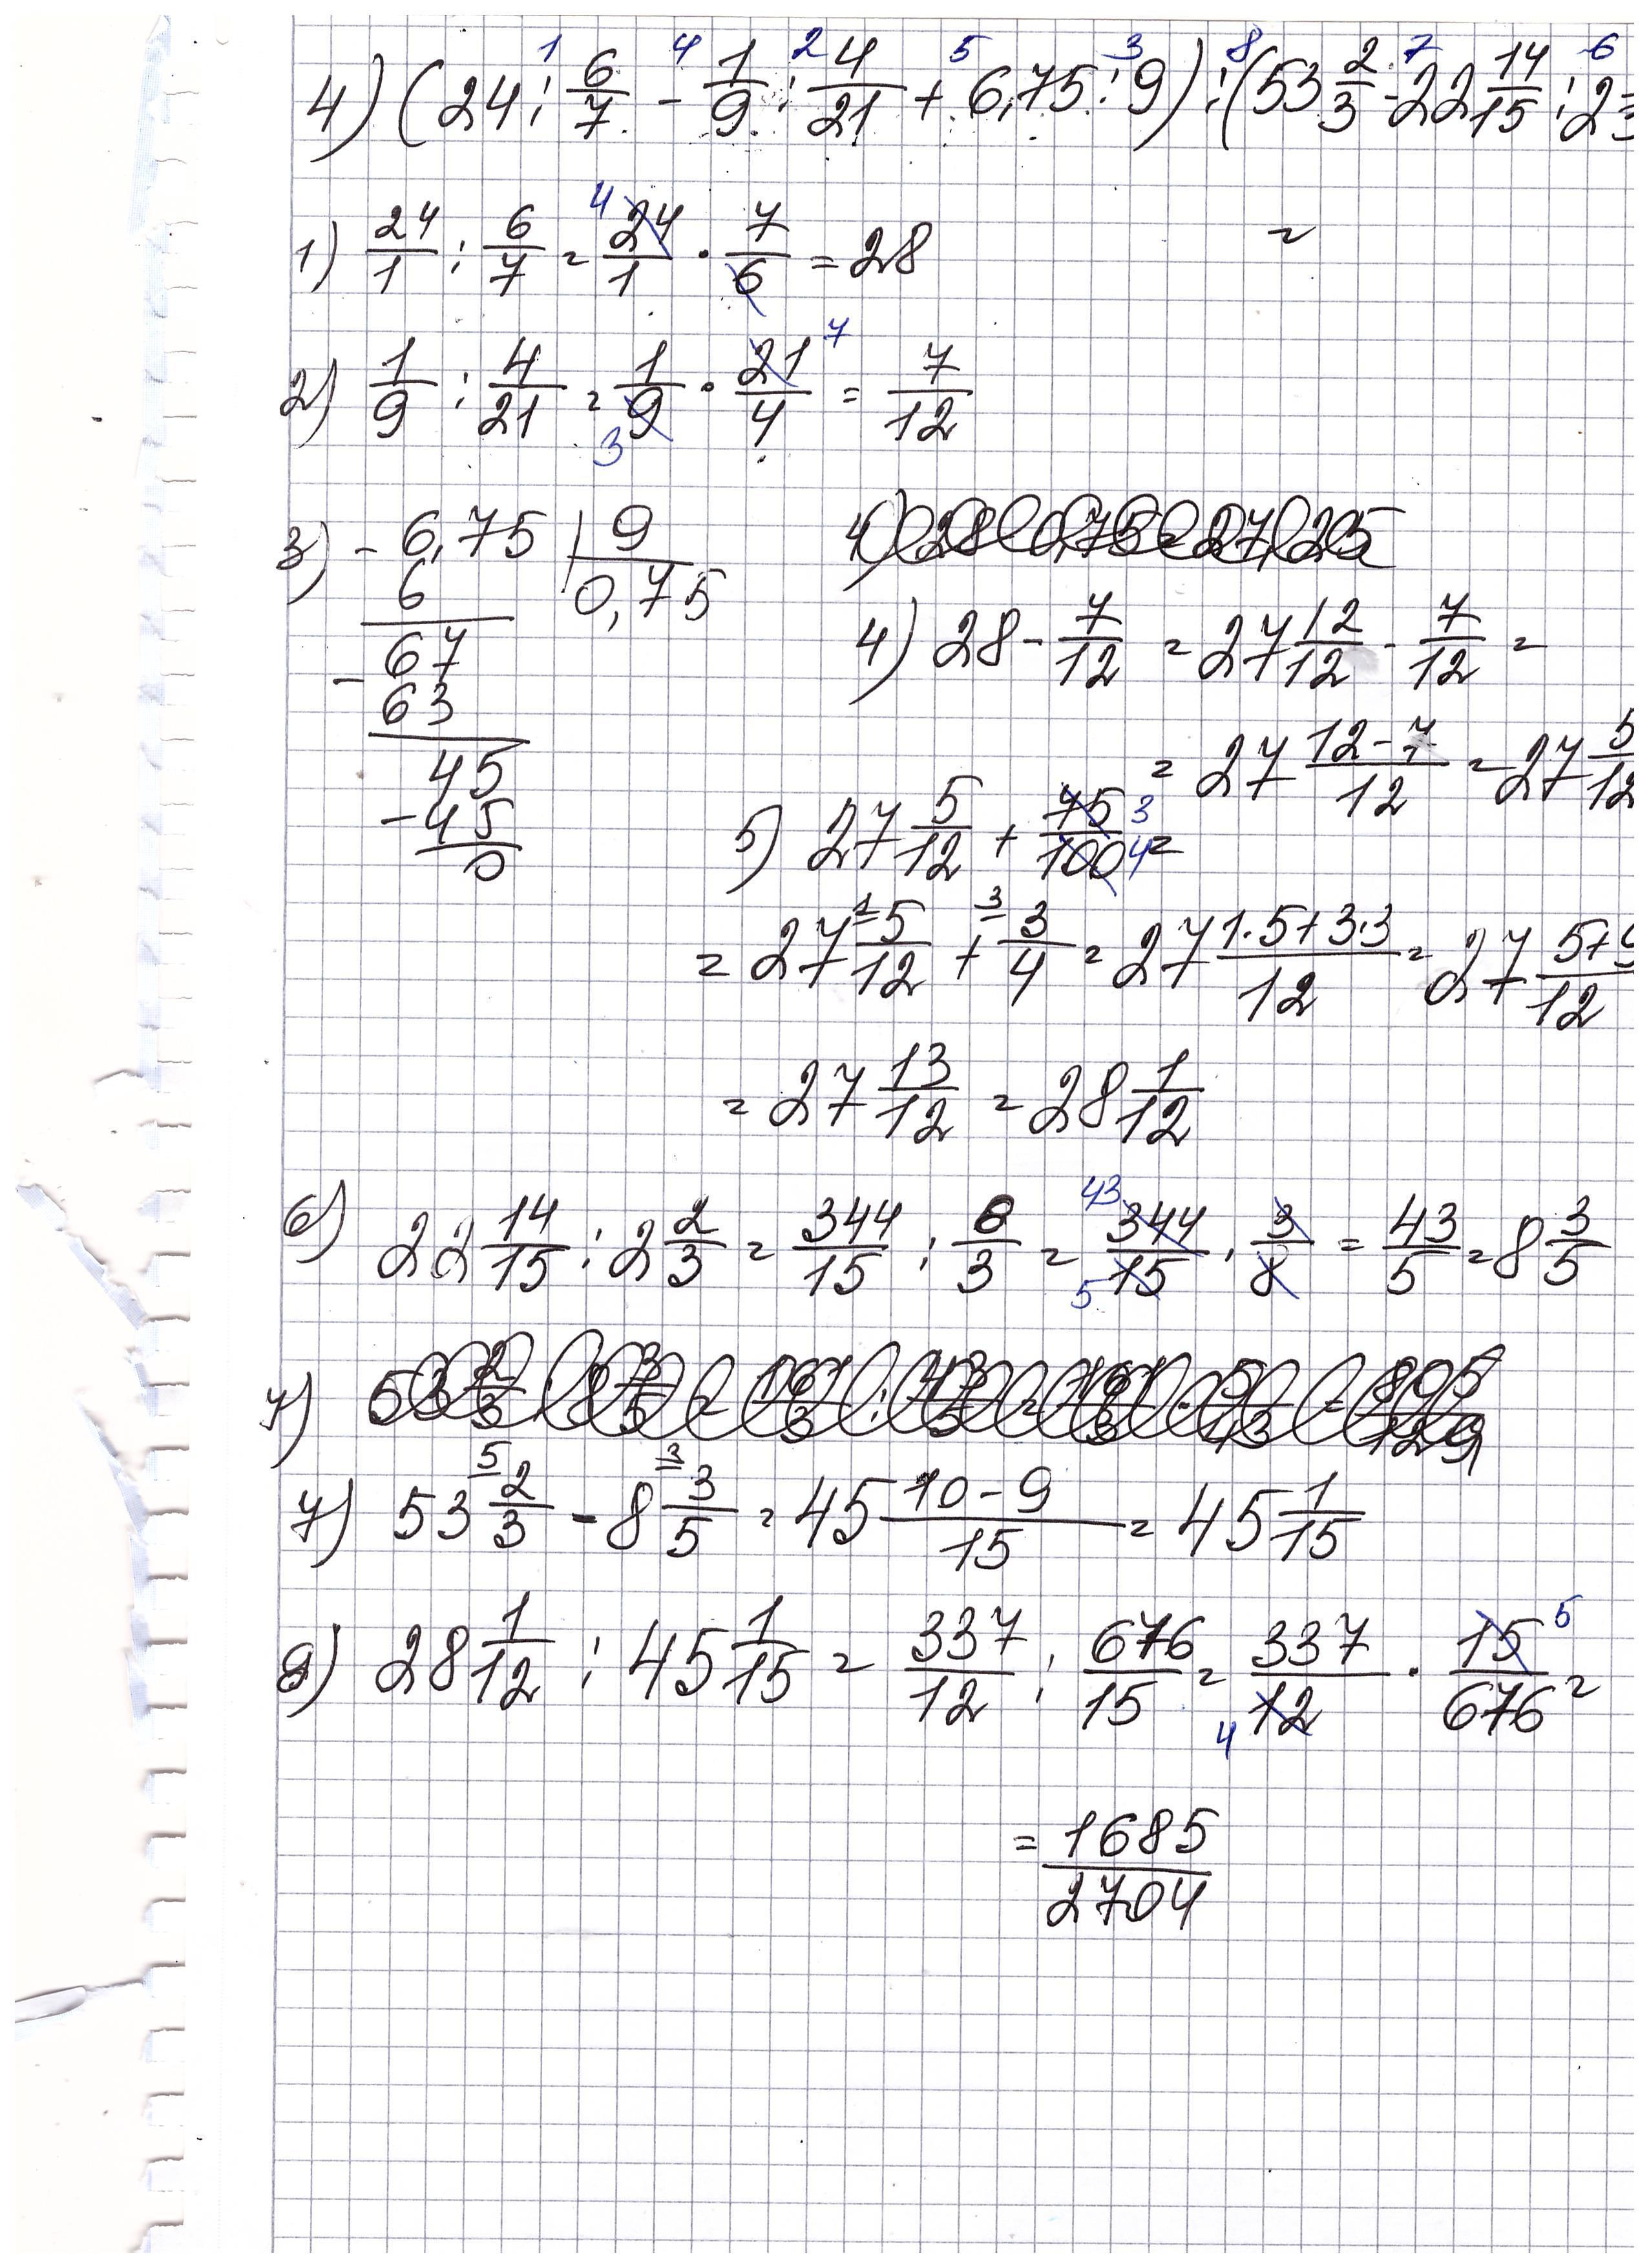 4) (24 : 6/7 - 1/9 : 4/21 + 6,75 : 9) : (53 2/3 - 22 14/15 : 2
1 4 2 5 3 8 7 6
=
1) 24/1 : 6/7 = 24/1 · 7/6 = 28
4
2) 1/9 : 4/21 = 1/9 · 21/4 = 7/12
3 7
3) - 6,75 | 9
6 0,75
- 67
63
45
- 45
0
4) 28 - 0,75 = 27,25
4) 28 - 7/12 = 27 12/12 - 7/12 =
= 27 (12-7)/12 = 27 5/12
5) 27 5/12 + 75/100 =
3 4
= 27 5/12 + 3/4 = 27 (1·5+3·3)/12 = 27 (5+9)/12
1 3
= 27 13/12 = 28 1/12
6) 22 14/15 : 2 2/3 = 344/15 : 8/3 = 344/15 · 3/8 = 43/5 = 8 3/5
43 5
7)
7) 53 2/3 - 8 3/5 = 45 (10-9)/15 = 45 1/15
5 3
8) 28 1/12 : 45 1/15 = 337/12 : 676/15 = 337/12 · 15/676 =
4 5
= 1685/2704